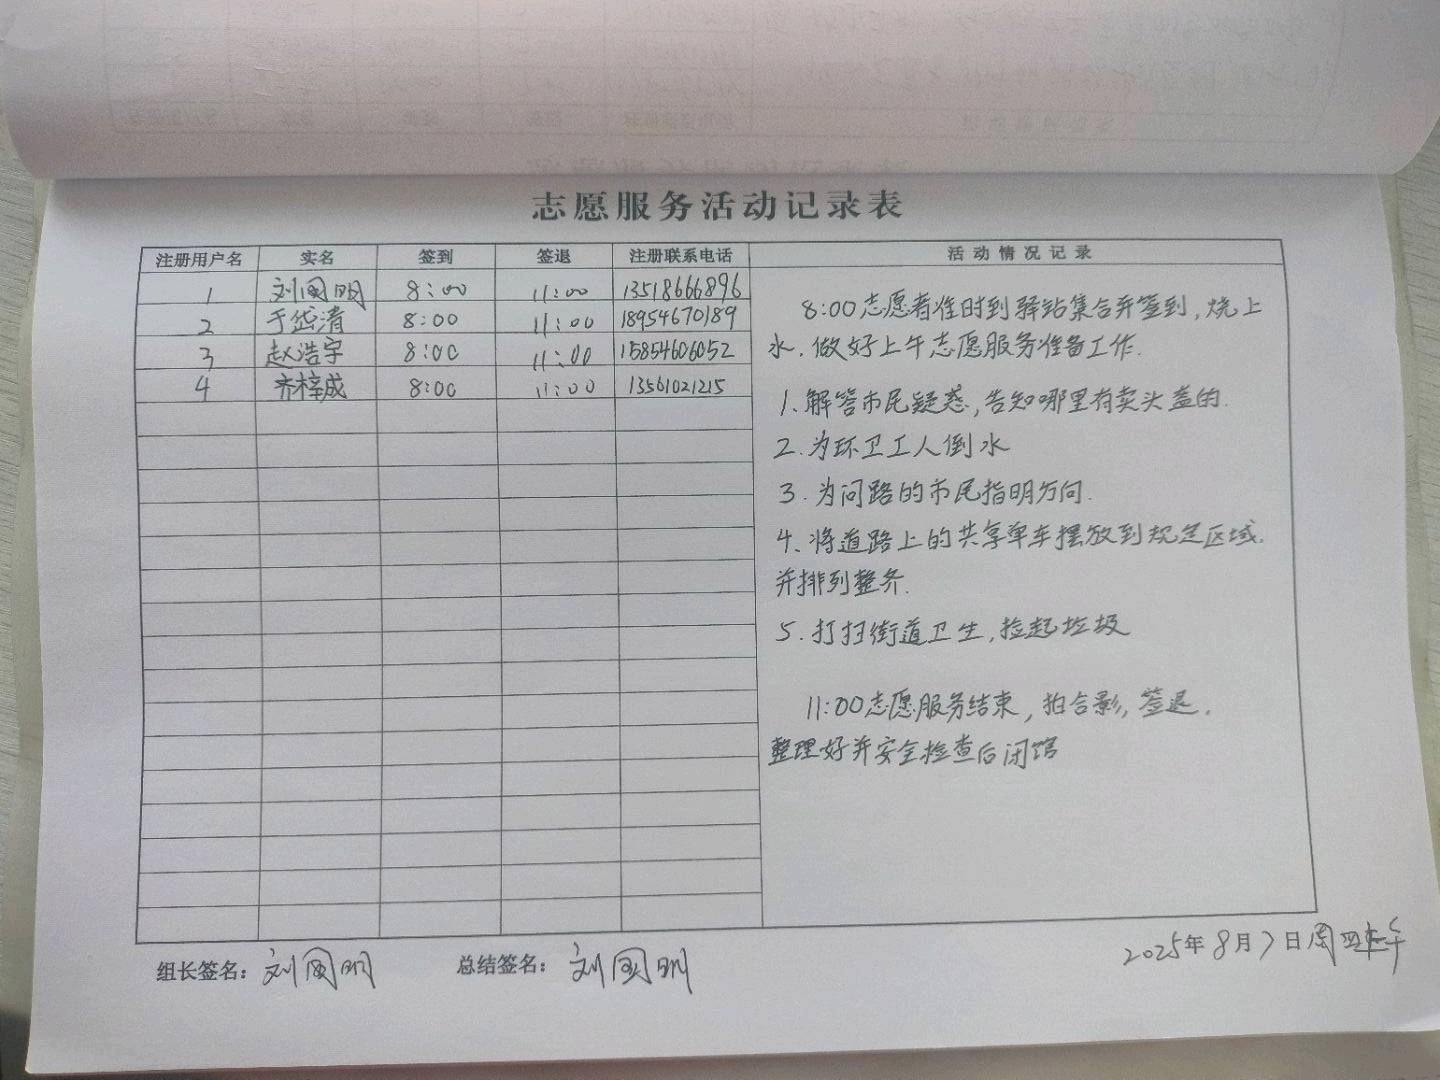 志愿服务活动记录表
注册用户名 实名 签到 签退 注册联系电话 活动情况记录
1 刘国明 8:00 11:00 13518666896
2 于岱清 8:00 11:00 18954670189
3 赵浩宇 8:00 11:00 15854606052
4 齐梓成 8:00 11:00 13561021215
8:00志愿者准时到驿站集合并签到,烧上
水.做好上午志愿服务准备工作.
1、解答市民疑惑,告知哪里有卖头盔的.
2.为环卫工人倒水
3.为问路的市民指明方向.
4、将道路上的共享单车摆放到规定区域.
并排列整齐.
5.打扫街道卫生,捡起垃圾
11:00志愿服务结束,拍合影,签退.
整理好并安全检查后闭馆
2025年8月7日周四上午
组长签名: 刘国明 总结签名: 刘国明